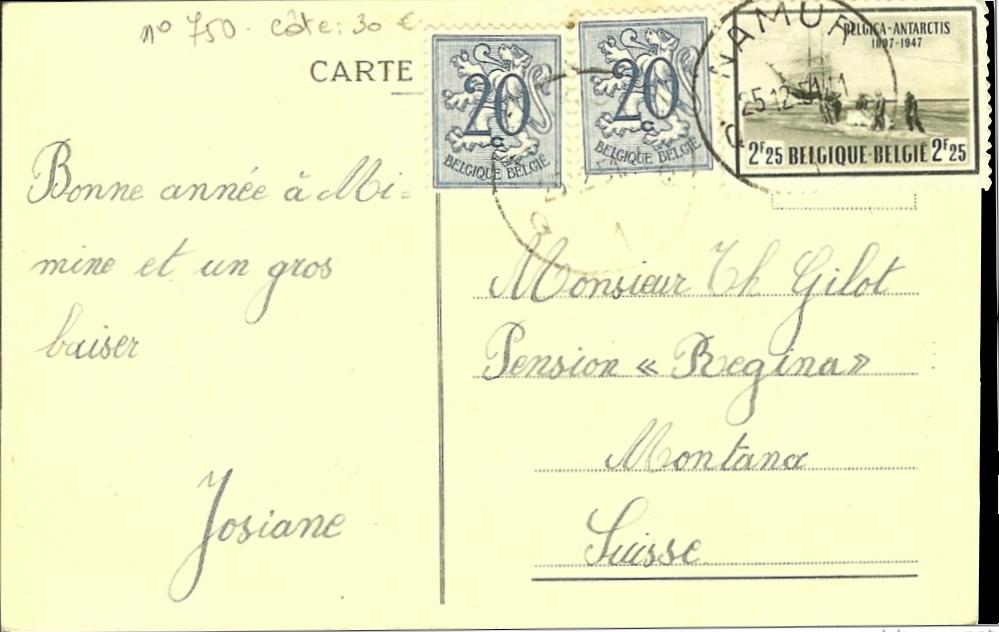 n° 750 - côte: 30 €
CARTE
20 c
BELGIQUE BELGIË
20 c
BELGIQUE BELGIË
NAMUR
25-12-51
BELGICA-ANTARCTIS
1897-1947
2F25 BELGIQUE-BELGIË 2F25
Bonne année à Mi=
mine et un gros
baiser
Josiane
Monsieur Th Gilot
Pension « Regina »
Montana
Suisse